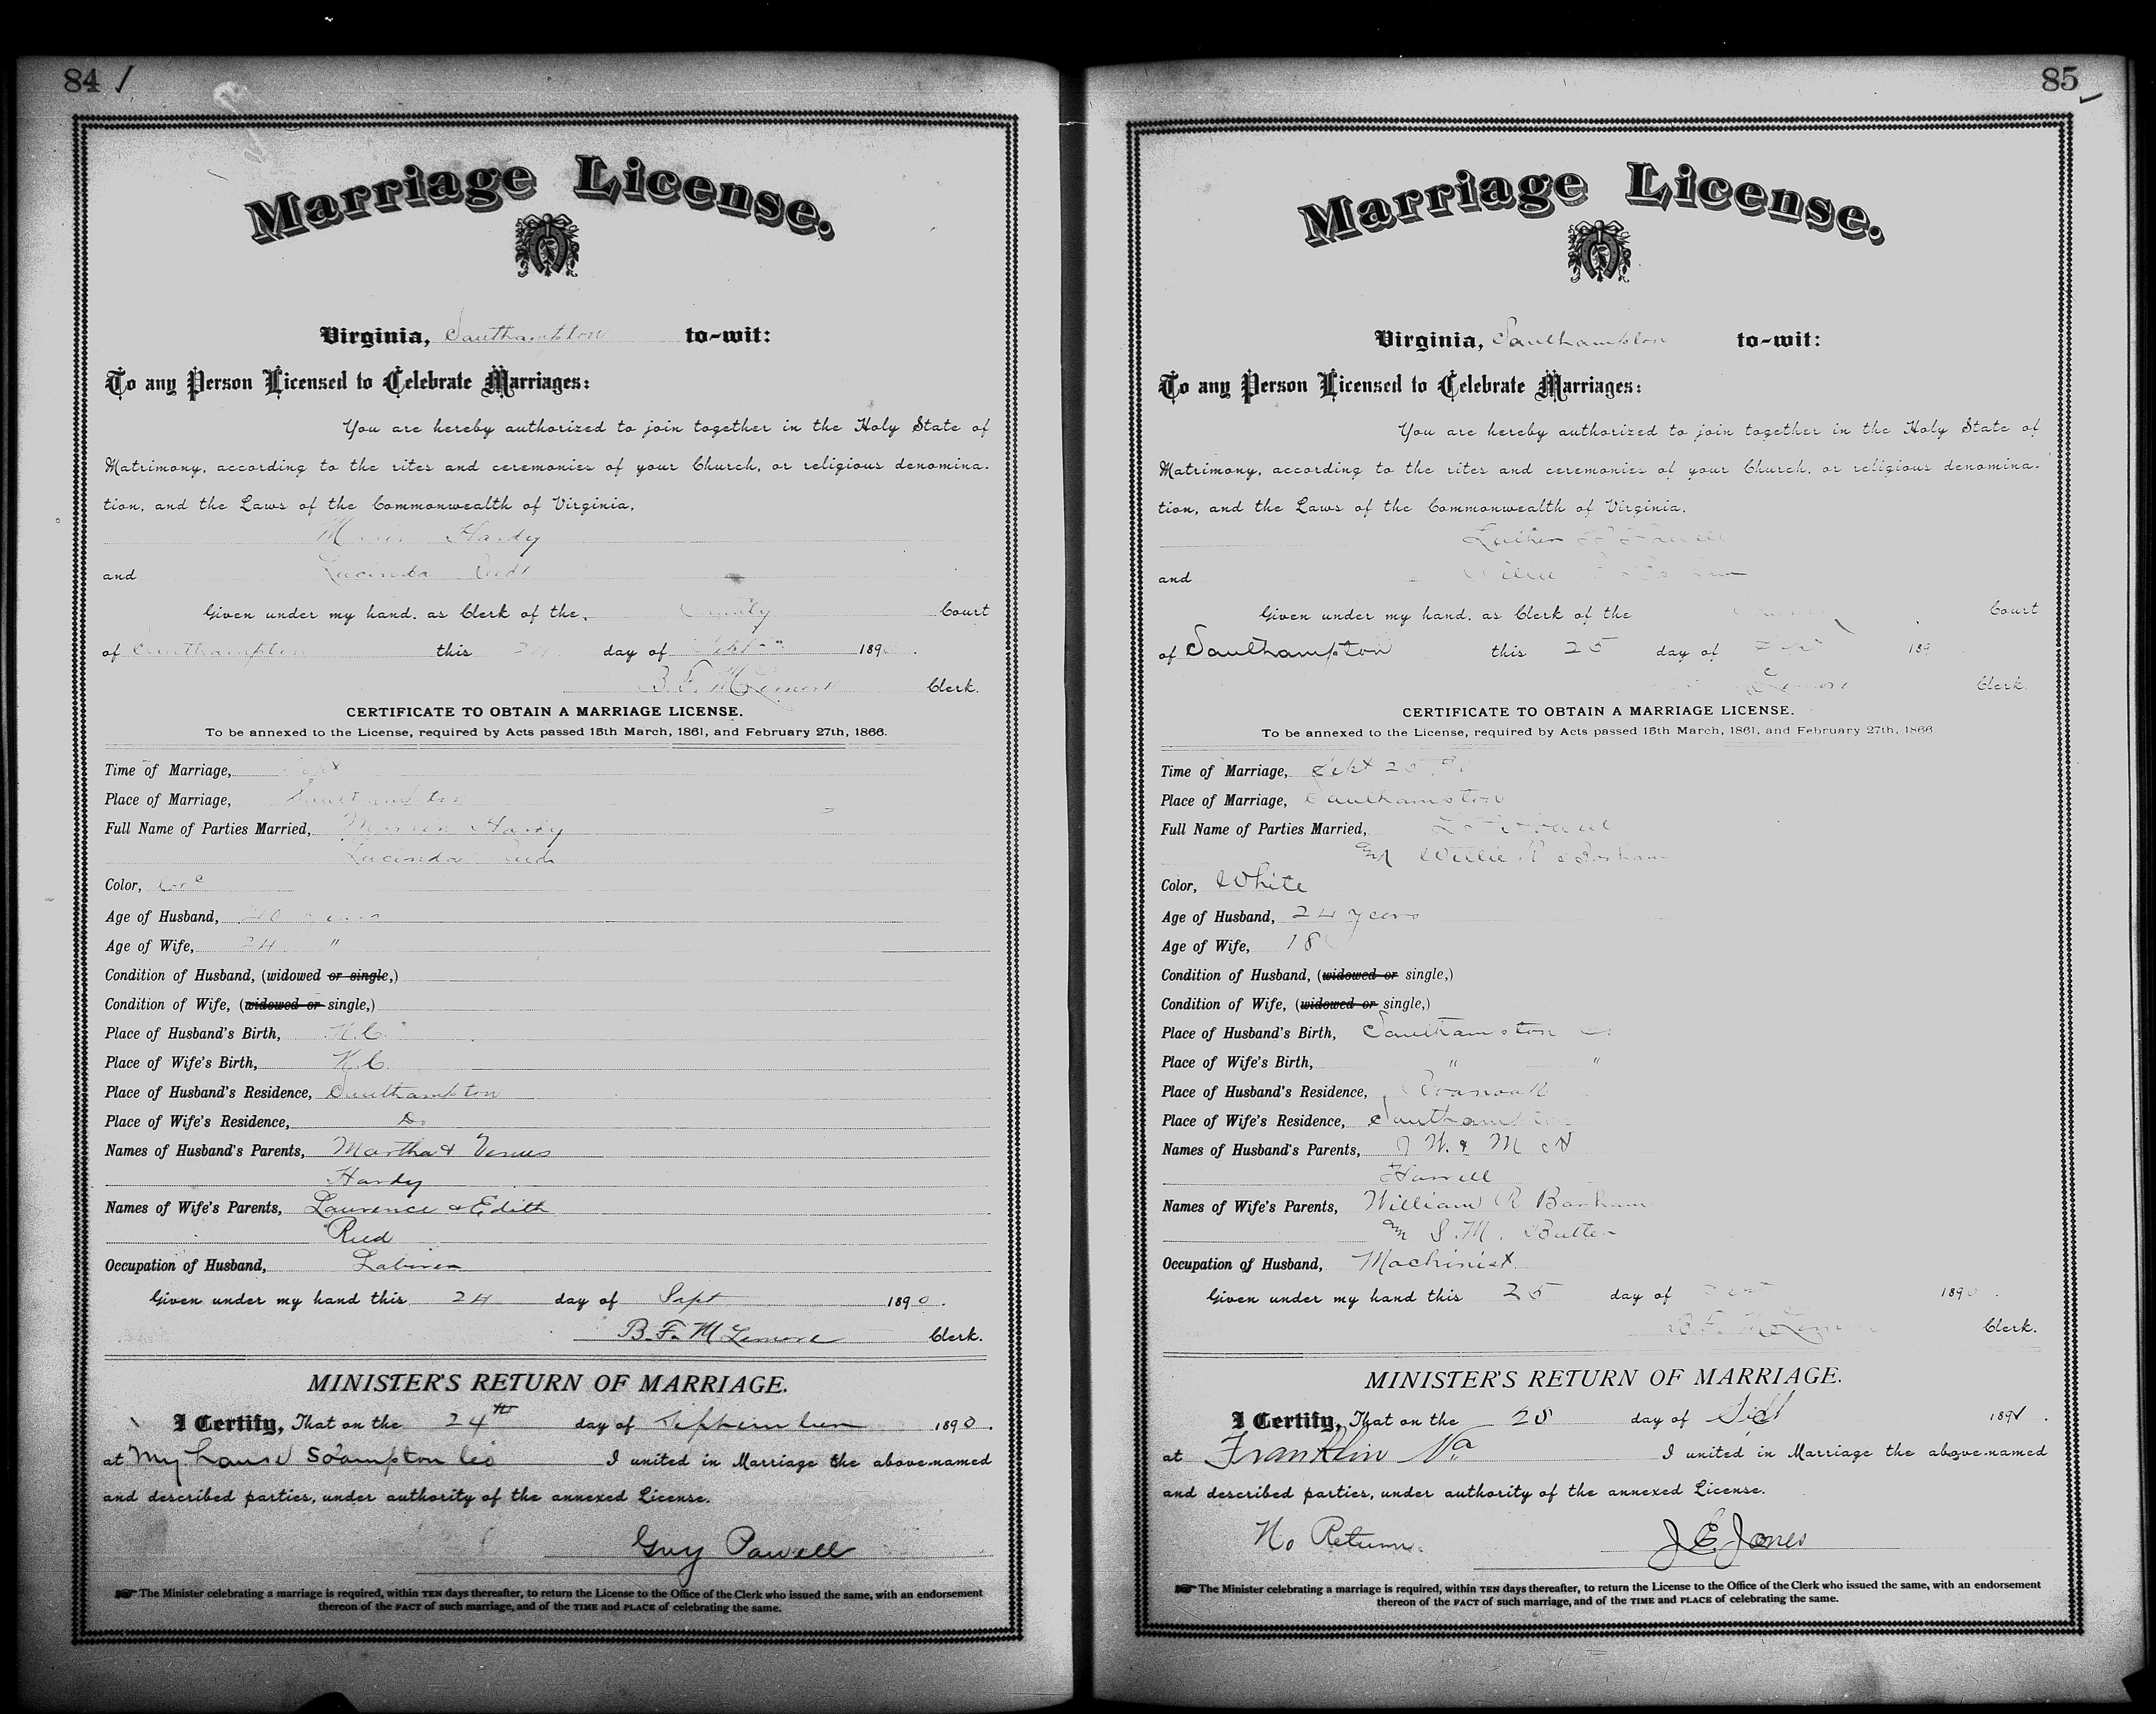 84
Marriage License.
Virginia, Southampton to-wit:
To any Person Licensed to Celebrate Marriages:
You are hereby authorized to join together in the Holy State of
Matrimony, according to the rites and ceremonies of your Church, or religious denomina-
tion, and the Laws of the Commonwealth of Virginia,
Hardy
and Lucinda
Given under my hand, as Clerk of the County Court
of Southampton this 24 day of Sept 1890.
B. F. McLemore Clerk.
CERTIFICATE TO OBTAIN A MARRIAGE LICENSE.
To be annexed to the License, required by Acts passed 15th March, 1861, and February 27th, 1866.
Time of Marriage,
Place of Marriage, Southampton
Full Name of Parties Married, Hardy
Lucinda
Color,
Age of Husband, 40 years
Age of Wife, 24 "
Condition of Husband, (widowed or single,)
Condition of Wife, (widowed or single,)
Place of Husband's Birth, N.C.
Place of Wife's Birth, N.C.
Place of Husband's Residence, Southampton
Place of Wife's Residence, Do
Names of Husband's Parents, Martha & Venus
Hardy
Names of Wife's Parents, Laurence & Edith
Reed
Occupation of Husband, Laborer
Given under my hand this 24 day of Sept 1890.
B. F. McLemore Clerk.
MINISTER'S RETURN OF MARRIAGE.
I Certify, That on the 24th day of 1890.
at My house I united in Marriage the above-named
and described parties, under authority of the annexed License.
Guy Powell
The Minister celebrating a marriage is required, within TEN days thereafter, to return the License to the Office of the Clerk who issued the same, with an endorsement
thereon of the FACT of such marriage, and of the TIME and PLACE of celebrating the same.
85
Marriage License.
Virginia, Southampton to-wit:
To any Person Licensed to Celebrate Marriages:
You are hereby authorized to join together in the Holy State of
Matrimony, according to the rites and ceremonies of your Church, or religious denomina-
tion, and the Laws of the Commonwealth of Virginia,
Luther
and Willie
Given under my hand, as Clerk of the Court
of Southampton this 25 day of 189
McLemore Clerk.
CERTIFICATE TO OBTAIN A MARRIAGE LICENSE.
To be annexed to the License, required by Acts passed 15th March, 1861, and February 27th, 1866.
Time of Marriage, Sept 25
Place of Marriage, Southampton
Full Name of Parties Married,
Willie R Barham
Color, White
Age of Husband, 24 years
Age of Wife, 18
Condition of Husband, (widowed or single,)
Condition of Wife, (widowed or single,)
Place of Husband's Birth, Southampton
Place of Wife's Birth, " "
Place of Husband's Residence, Roanoak
Place of Wife's Residence, Southampton
Names of Husband's Parents, J W. & M
Names of Wife's Parents, William R Barham
S. M. Butler
Occupation of Husband, Machinist
Given under my hand this 25 day of 1890.
B. F. McLemore Clerk.
MINISTER'S RETURN OF MARRIAGE.
I Certify, That on the day of 189
at Franklin Va I united in Marriage the above-named
and described parties, under authority of the annexed License.
No Return. J. E. Jones
The Minister celebrating a marriage is required, within TEN days thereafter, to return the License to the Office of the Clerk who issued the same, with an endorsement
thereon of the FACT of such marriage, and of the TIME and PLACE of celebrating the same.